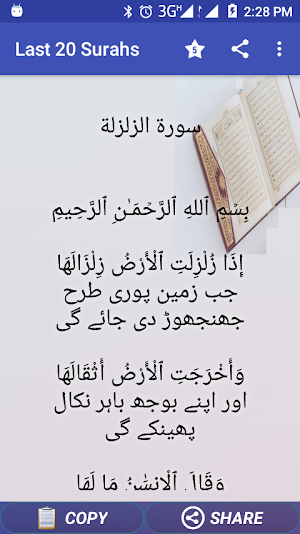 3G H 2:28 PM
Last 20 Surahs 5
سورة الزلزلة
بِسْمِ ٱللهِ ٱلرَّحْمَـٰنِ ٱلرَّحِيمِ
إِذَا زُلْزِلَتِ ٱلْأَرْضُ زِلْزَالَهَا
جب زمین پوری طرح
جھنجھوڑ دی جائے گی
وَأَخْرَجَتِ ٱلْأَرْضُ أَثْقَالَهَا
اور اپنے بوجھ باہر نکال
پھینکے گی
وَقَالَ ٱلْإِنسَـٰنُ مَا لَهَا
COPY SHARE